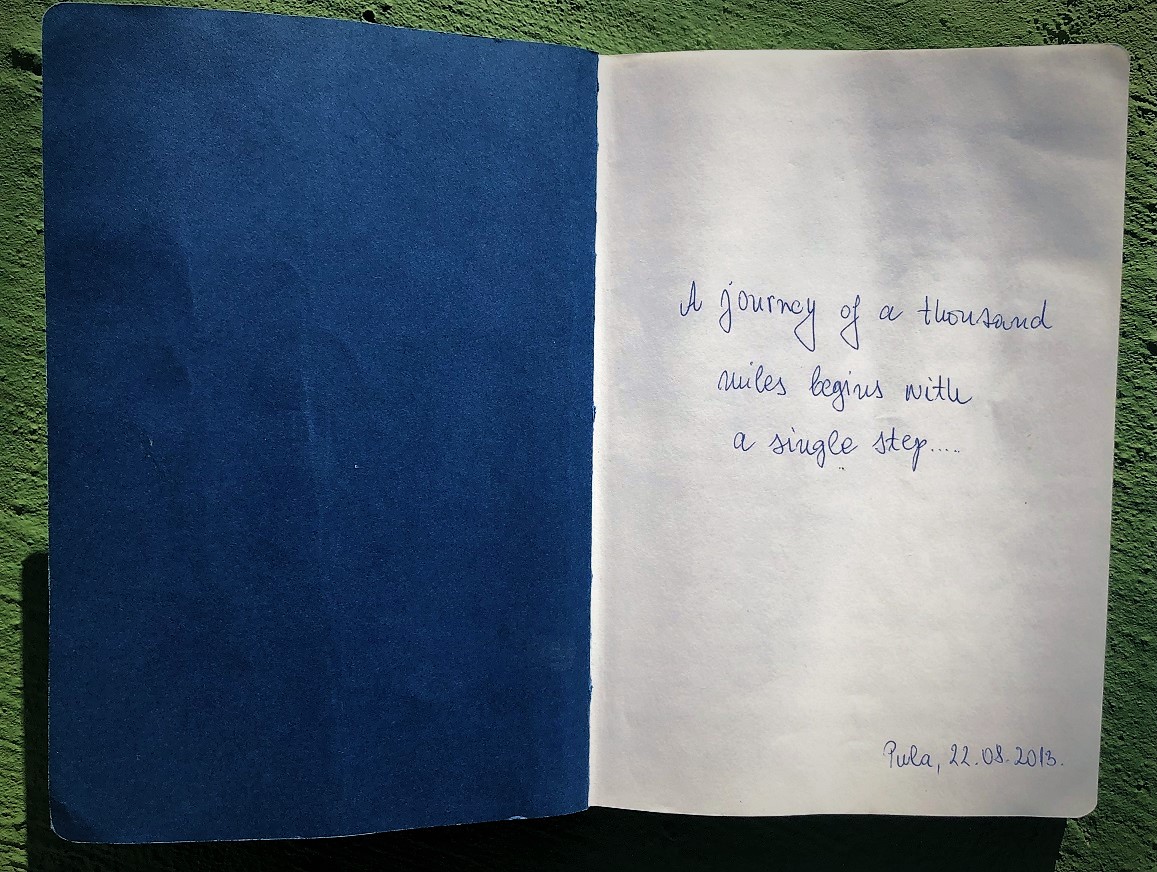 A journey of a thousand
miles begins with
a single step.....
Pula, 22.08.2013.